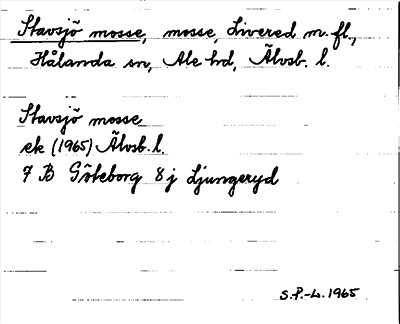 Stavsjö mosse, mosse, Livered m. fl.,
Hålanda sn, Ale hd, Älvsb. l.
Stavsjö mosse
ek (1965) Älvsb. l.
7 B Göteborg 8 j Ljungeryd
S.P.-L. 1965